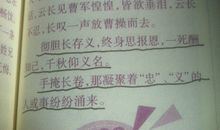 恩，云长见曹军惶惶，皆欲垂泪，云长
不忍，长叹一声放曹操而去。
彻胆长存义，终身思报恩，一死酬
知己，千秋仰义名。
手掩长卷，那凝聚着“忠”、“义”的
人或事纷纷涌来。